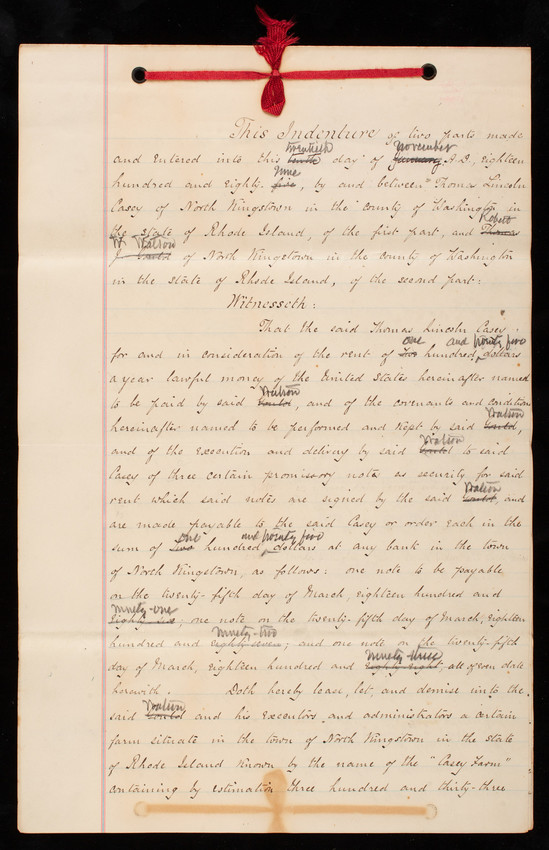 This Indenture of two parts made
twentieth November
and entered into this tenth day of January A.D. eighteen
nine
hundred and eighty-five, by and between Thomas Lincoln
Casey of North Kingstown in the county of Washington in
Robert
the state of Rhode Island, of the first part, and Thomas
W Watson
of North Kingstown in the county of Washington
in the state of Rhode Island, of the second part:
Witnesseth:
That the said Thomas Lincoln Casey
one and seventy five
for and in consideration of the rent of two hundred dollars
a year lawful money of the United States hereinafter named
Watson
to be paid by said, and of the covenants and condition
Watson
hereinafter named to be performed and kept by said,
Watson
and of the execution and delivery by said to said
Casey of three certain promissory notes as security for said
Watson
rent which said notes are signed by the said, and
are made payable to the said Casey or order each in the
one and seventy five
sum of two hundred, dollars at any bank in the town
of North Kingstown, as follows: one note to be payable
on the twenty-fifth day of March, eighteen hundred and
ninety-one
eighty-six; one note on the twenty-fifth day of March, eighteen
ninety-two
hundred and eighty-seven; and one note on the twenty-fifth
ninety-three
day of March, eighteen hundred and eighty-eight all of even date
herewith. Doth hereby lease, let, and demise unto the
Watson
said and his executors and administrators a certain
farm situate in the town of North Kingstown in the state
of Rhode Island known by the name of the "Casey Farm"
containing by estimation three hundred and thirty-three